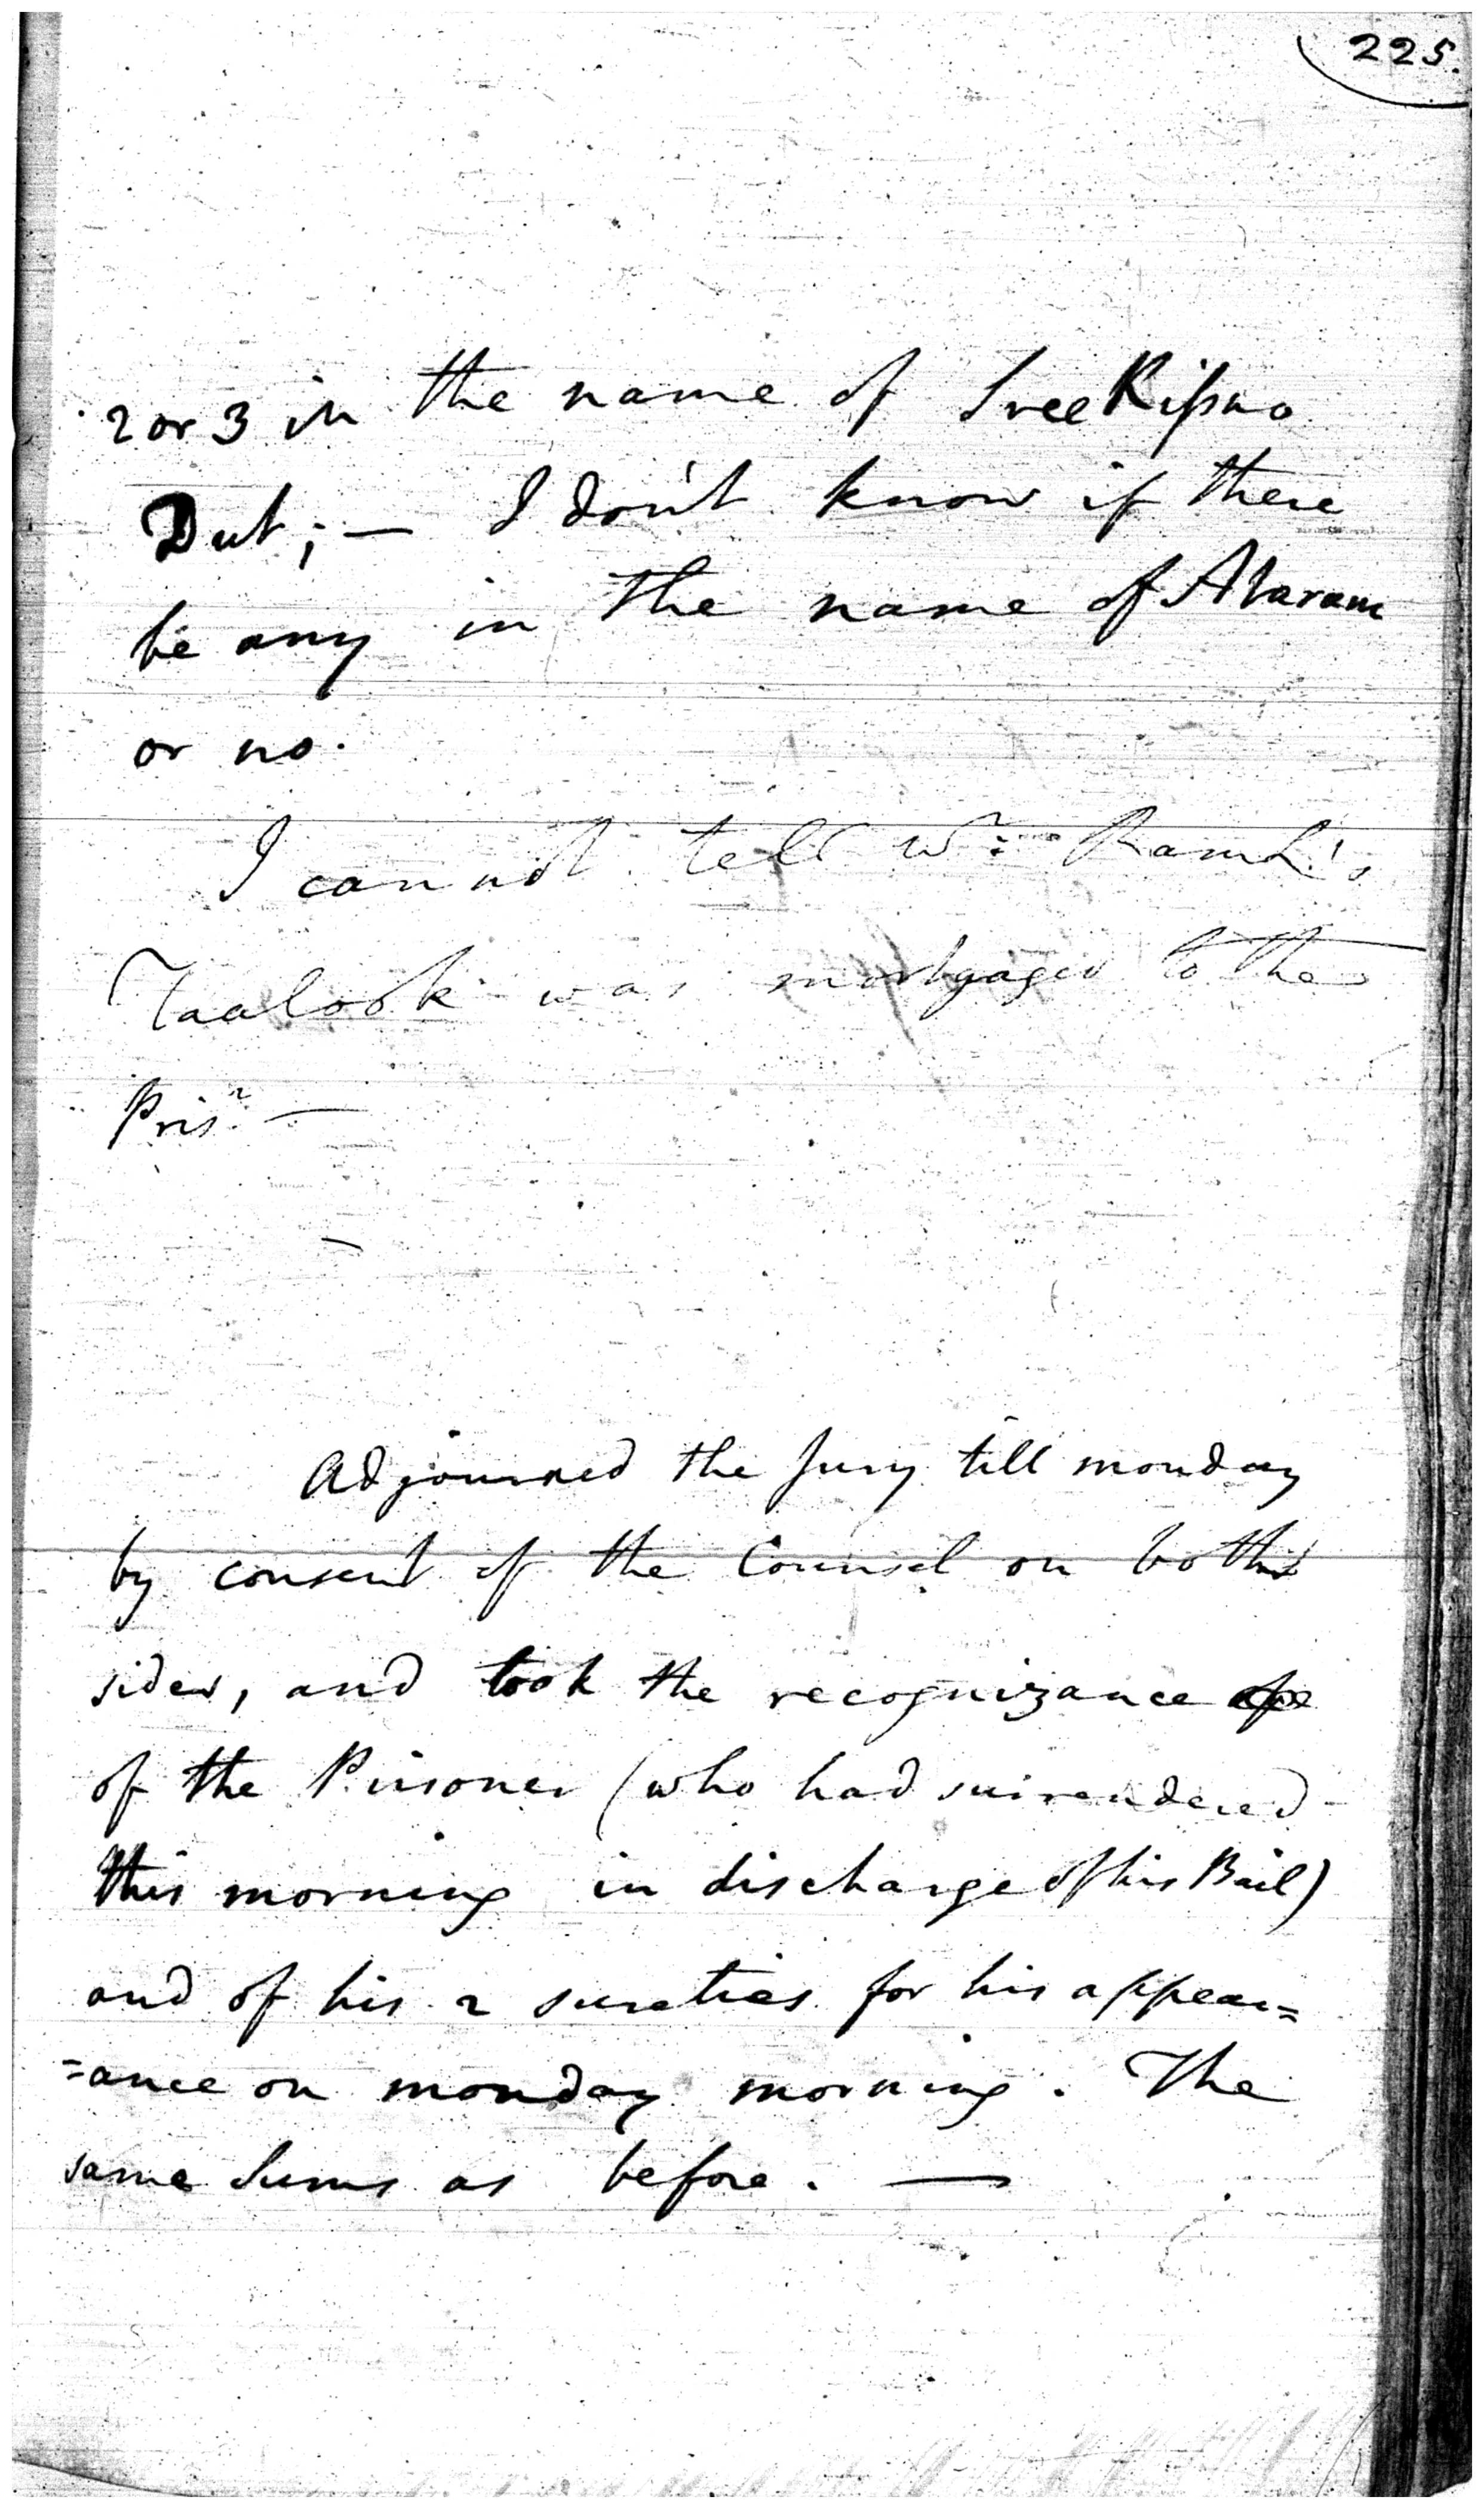 225.
2 or 3 in the name of Sree Kissno
Dut; — I don't know if there
be any in the name of Ataram
or no.
I cannot tell wr: Raml.'s
Taalook was mortgaged to the
Prisr. —
Adjourned the Jury till monday
by consent of the Counsel on both
sides, and took the recognizance
of the Prisoner (who had surrendered
this morning in discharge of his Bail)
and of his 2 sureties for his appear=
=ance on monday morning. The
same Sums as before. —